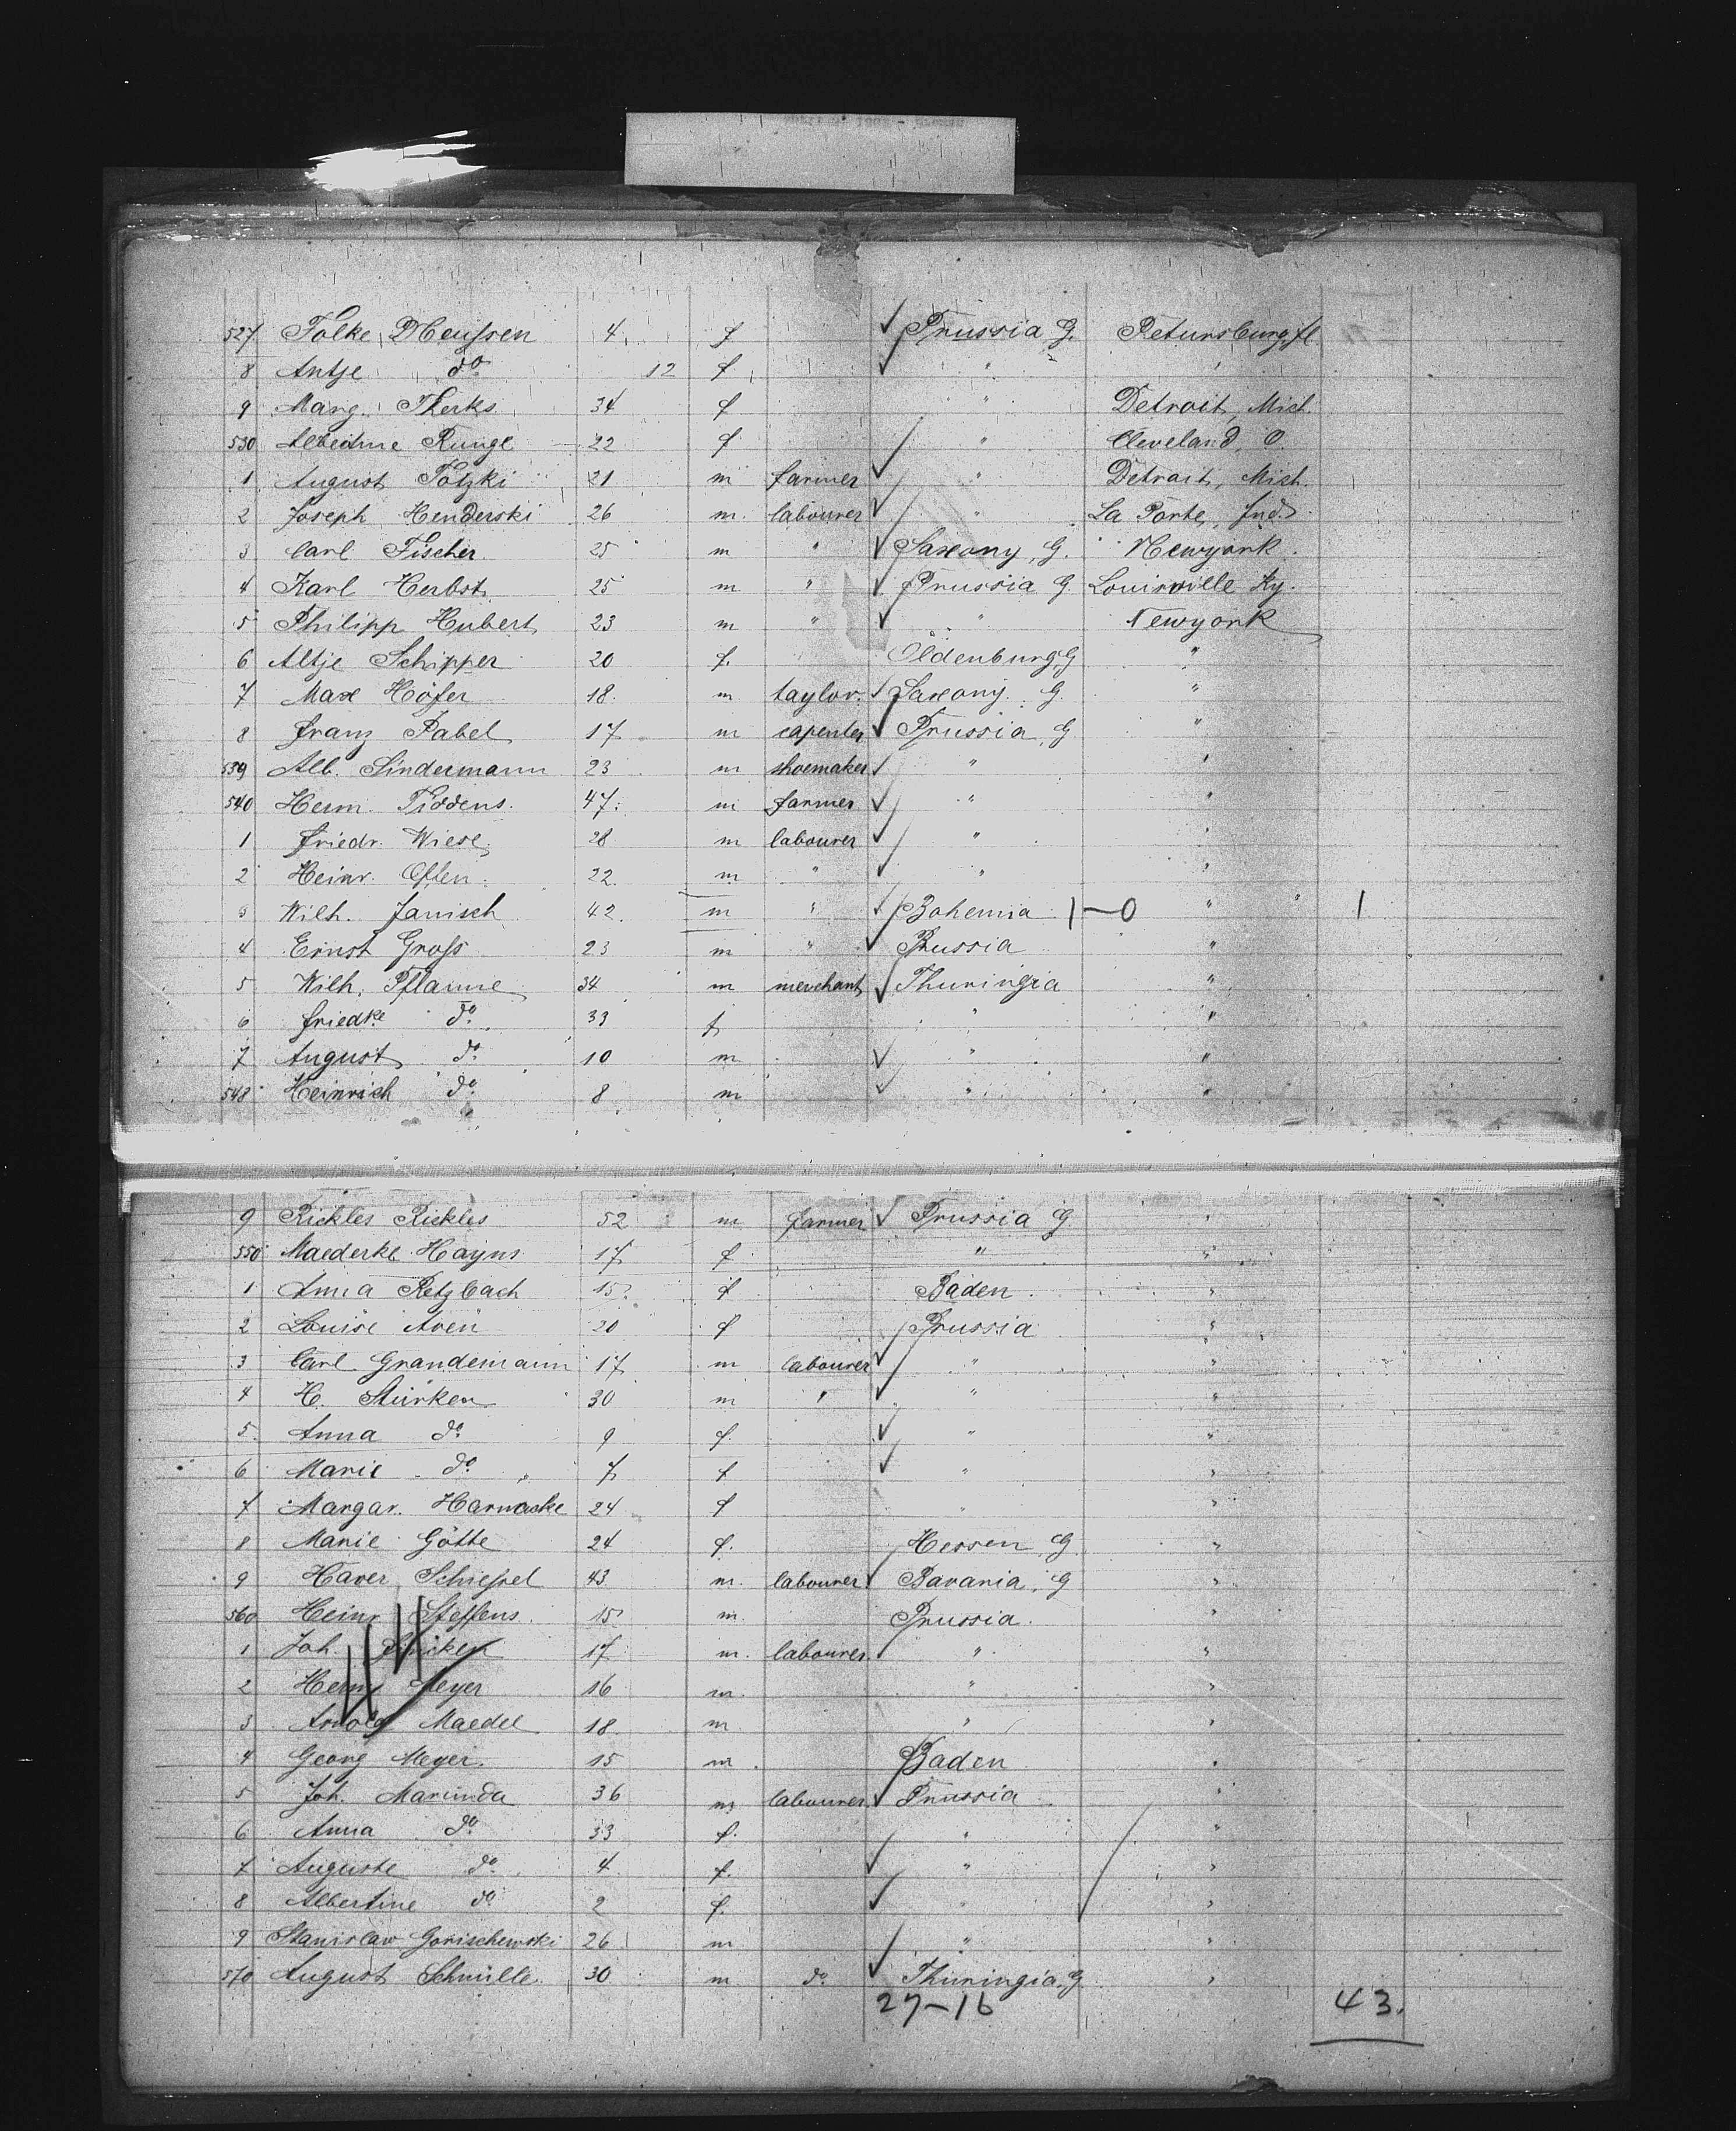 527 Folke DHeussen 4 f Prussia G. Petursburg, Il.
8 Antje do 12 f " "
9 Marg. Therks 34 f " Detroit, Mich.
530 Albertine Runge 22 f " Cleveland, O.
1 August Totzki 21 m farmer " Detroit, Mich.
2 Joseph Henderski 26 m. labourer " La Porte, Ind.
3 Carl Fischer 25 m " Saxony, G. Newyork.
4 Karl Herbst 25 m " Prussia G. Louisville Ky.
5 Philipp Hubert 23 m " " Newyork
6 Altje Schipper 20 f. Oldenburg, G "
7 Max Höfer 18. m taylor. Saxony. G. "
8 Franz Pabel 17 m capenter Prussia, G "
539 Alb. Lindermann 23 m shoemaker " "
540 Herm. Tiddens. 47. m farmer " "
1 Friedr. Wiese 28 m labourer " "
2 Heinr. 22. m " " "
3 Wilh. Janisch 42. m " Bohemia 1-0 " " 1
4 Ernst Gross 23 m " Prussia "
5 Wilh. Pflaume 34 m merchant Thuringia "
6 Friedke do 33 f " "
7 August do 10 m " "
548 Heinrich do 8 m " "
9 Rickles Rickles 52 m farmer Prussia G "
550 Maederke Hayns 17 f " "
1 Anna Retzbach 15 f Baden "
2 Louise Aven 20 f Prussia "
3 Carl Grandemann 17 m labourer " "
4 H. Stürken 30 m " " "
5. Anna do 9 f. " "
6 Marie do 7 f " "
7 Margar. Harnaske 24 f " "
8 Marie Götte 24 f. Hessen, G "
9 Xaver Schiessel 43 m. labourer Bavaria, G "
560 Heinr. Steffens. 15 m. Prussia. "
1 Joh. 17 m. labourer. " "
2 Herm. Meyer 16 m. " "
3 Arnold Maedel 18. m " "
4 Georg Meyer. 15 m Baden "
5 Joh. Marunda 36 m labourer. Prussia "
6 Anna do 33 f. " "
7 Auguste do 4 f. " "
8 Albertine do 2 f. " "
9 Stanislaw Gorischewski 26 m " "
570 August Schmülle 30 m do Thuringia, G "
27-16 43.